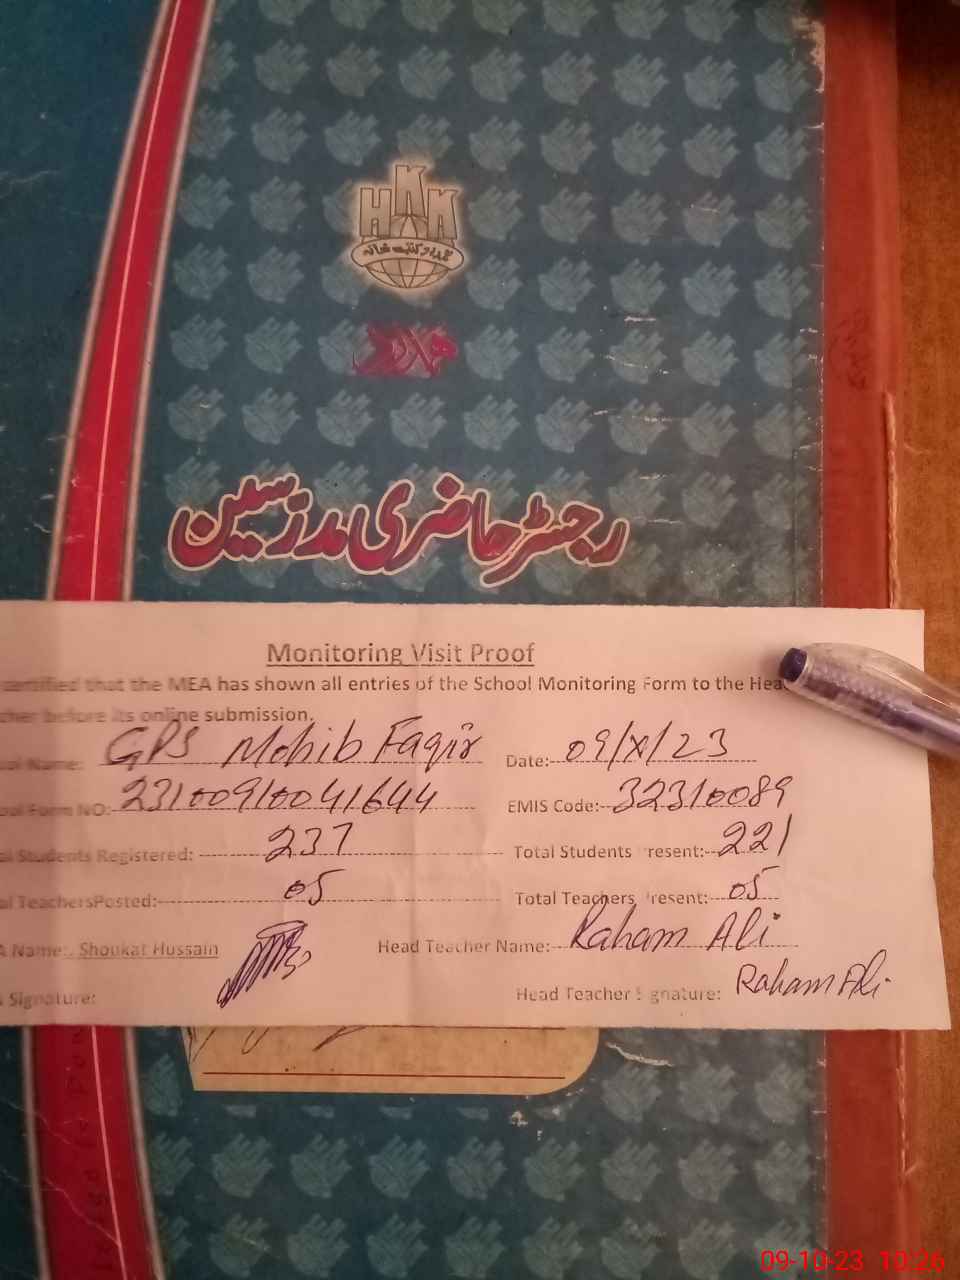 HKK
ہمدرد کتب خانہ
رجسٹر حاضری مدرسین
Monitoring Visit Proof
certified that the MEA has shown all entries of the School Monitoring Form to the Hea
cher before its online submission.
ool Name: GPS Mohib Faqir Date: 09/X/23
ool Form NO: 23100910041644 EMIS Code: 32310089
al Students Registered: 237 Total Students resent: 221
al TeachersPosted: 05 Total Teachers resent: 05
A Name: Shoukat Hussain Head Teacher Name: Raham Ali
Signature: Head Teacher S gnature: Raham Ali
09-10-23 10:26